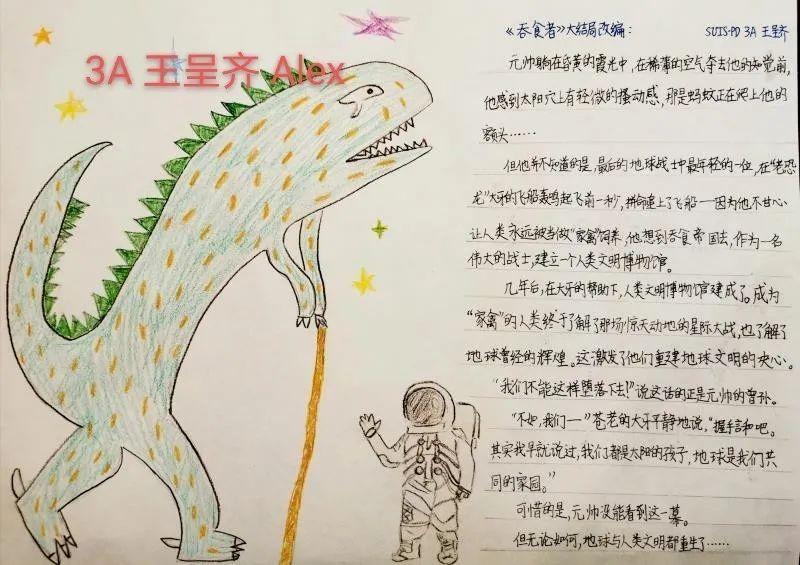 3A 王呈齐 Alex
《吞食者》大结局改编：
SUIS-PD 3A 王呈齐
元帅躺在昏黄的霞光中，在稀薄的空气夺去他的知觉前，
他感到太阳穴上有轻微的搔动感，那是蚂蚁正在爬上他的
额头……
但他并不知道的是，最后的地球战士中最年轻的一位，在“老恐
龙”大牙的飞船轰鸣起飞前一秒，拼命追上了飞船——因为他不甘心
让人类永远被当做“家禽”饲养，他想到吞食帝国去，作为一名
伟大的战士，建立一个人类文明博物馆。
几年后，在大牙的帮助下，人类文明博物馆建成了。成为
“家禽”的人类终于了解了那场惊天动地的星际大战，也了解了
地球曾经的辉煌。这激发了他们重建地球文明的决心。
“我们不能这样堕落下去！”说这话的正是元帅的曾孙。
“不如，我们——”苍老的大牙平静地说，“握手言和吧。
其实我早就说过，我们都是太阳的孩子，地球是我们共
同的家园。”
可惜的是，元帅没能看到这一幕。
但无论如何，地球与人类文明都重生了……